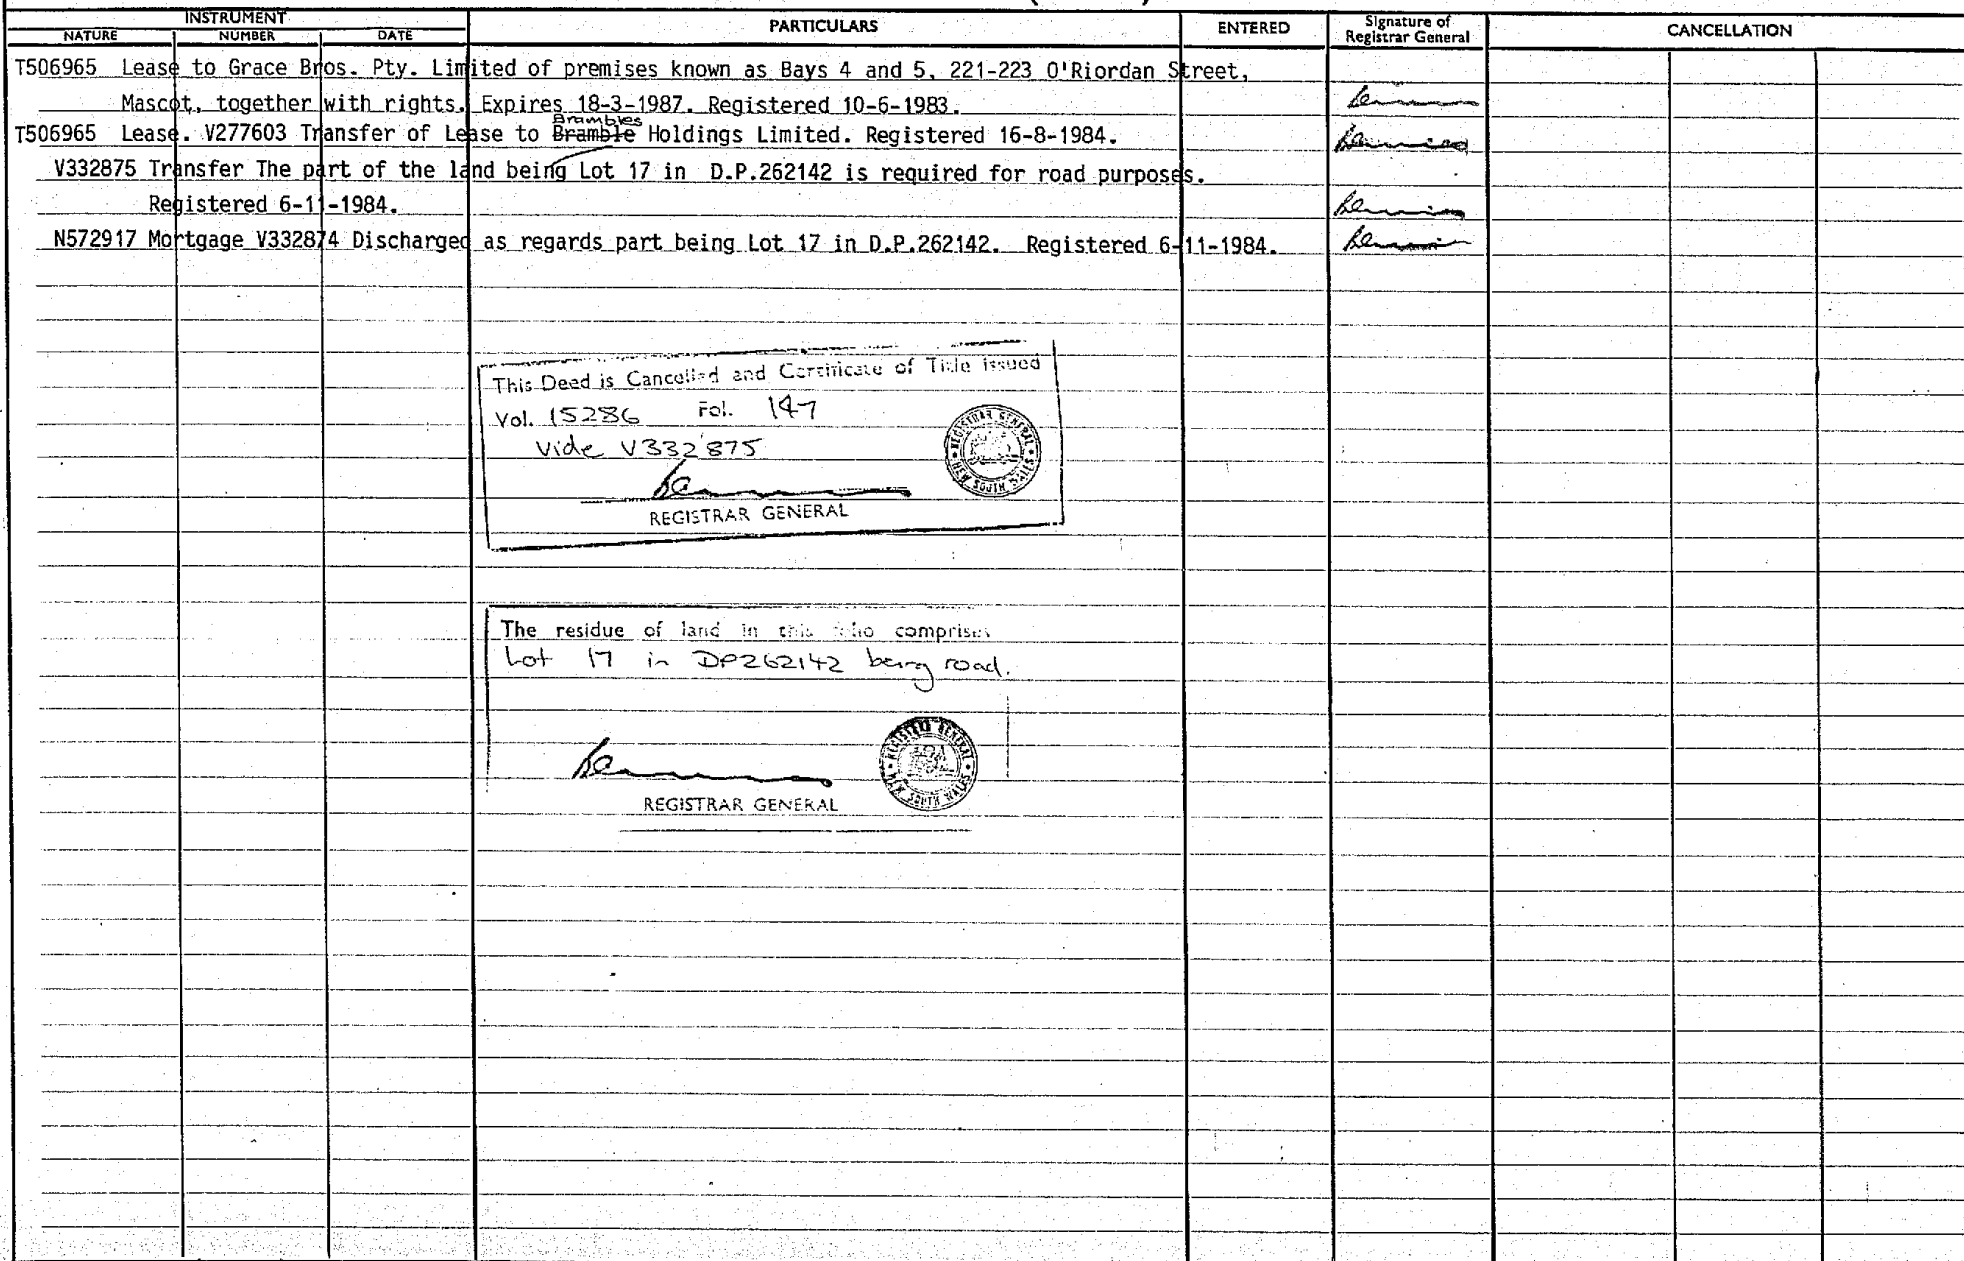 INSTRUMENT
NATURE NUMBER DATE PARTICULARS ENTERED Signature of Registrar General CANCELLATION
T506965 Lease to Grace Bros. Pty. Limited of premises known as Bays 4 and 5, 221-223 O'Riordan Street,
Mascot, together with rights. Expires 18-3-1987. Registered 10-6-1983.
Brambles
T506965 Lease. V277603 Transfer of Lease to Bramble Holdings Limited. Registered 16-8-1984.
V332875 Transfer The part of the land being Lot 17 in D.P.262142 is required for road purposes.
Registered 6-11-1984.
N572917 Mortgage V332874 Discharged as regards part being Lot 17 in D.P.262142. Registered 6-11-1984.
This Deed is Cancelled and Certificate of Title issued
Vol. 15286 Fol. 147
Vide V332875
REGISTRAR GENERAL
REGISTRAR GENERAL
NEW SOUTH WALES
The residue of land in this folio comprises
Lot 17 in DP262142 being road.
REGISTRAR GENERAL
REGISTRAR GENERAL
NEW SOUTH WALES